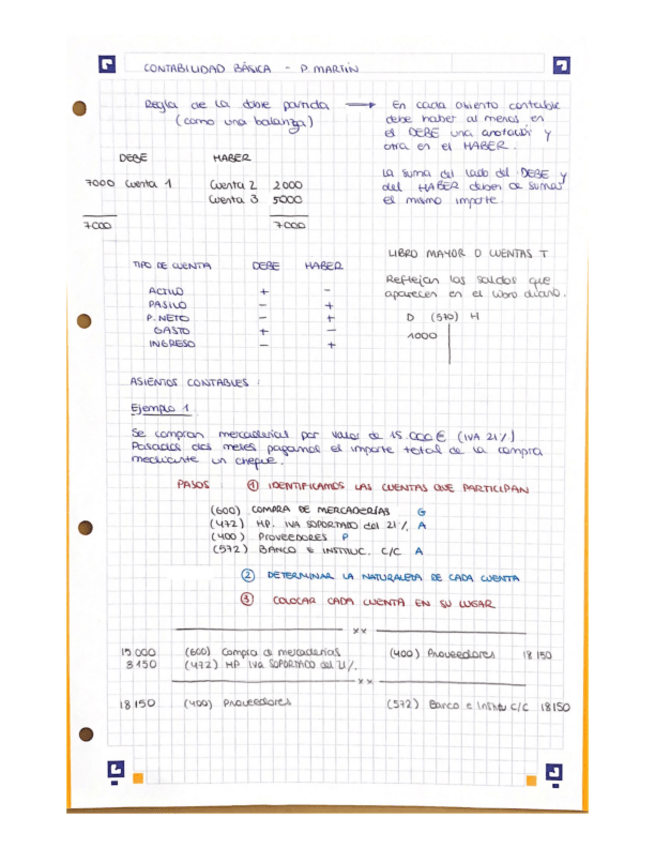 CONTABILIDAD BÁSICA - P. MARTÍN
Regla de la doble partida →
(como una balanza)
En cada asiento contable
debe haber al menos en
el DEBE una anotación y
otra en el HABER.
La suma del lado del DEBE y
del HABER deben de sumar
el mismo importe.
DEBE HABER
7000 Cuenta 1 Cuenta 2 2000
Cuenta 3 5000
7000 7000
LIBRO MAYOR O CUENTAS T
Reflejan los saldos que
aparecen en el libro diario.
D (570) H
1000
TIPO DE CUENTA DEBE HABER
ACTIVO + -
PASIVO - +
P. NETO - +
GASTO + -
INGRESO - +
ASIENTOS CONTABLES :
Ejemplo 1
Se compran mercaderías por valor de 15.000 € (IVA 21%)
Pasados dos meses pagamos el importe total de la compra
mediante un cheque.
PASOS ① IDENTIFICAMOS LAS CUENTAS QUE PARTICIPAN
(600) COMPRA DE MERCADERÍAS G
(472) HP. IVA SOPORTADO del 21% A
(400) Proveedores P
(572) BANCO E INSTITUC. C/C A
② DETERMINAR LA NATURALEZA DE CADA CUENTA
③ COLOCAR CADA CUENTA EN SU LUGAR
x x
15 000 (600) Compra de mercaderías (400) Proveedores 18 150
3 150 (472) HP IVA SOPORTADO del 21%.
x x
18 150 (400) Proveedores (572) Banco e Institu C/C 18150